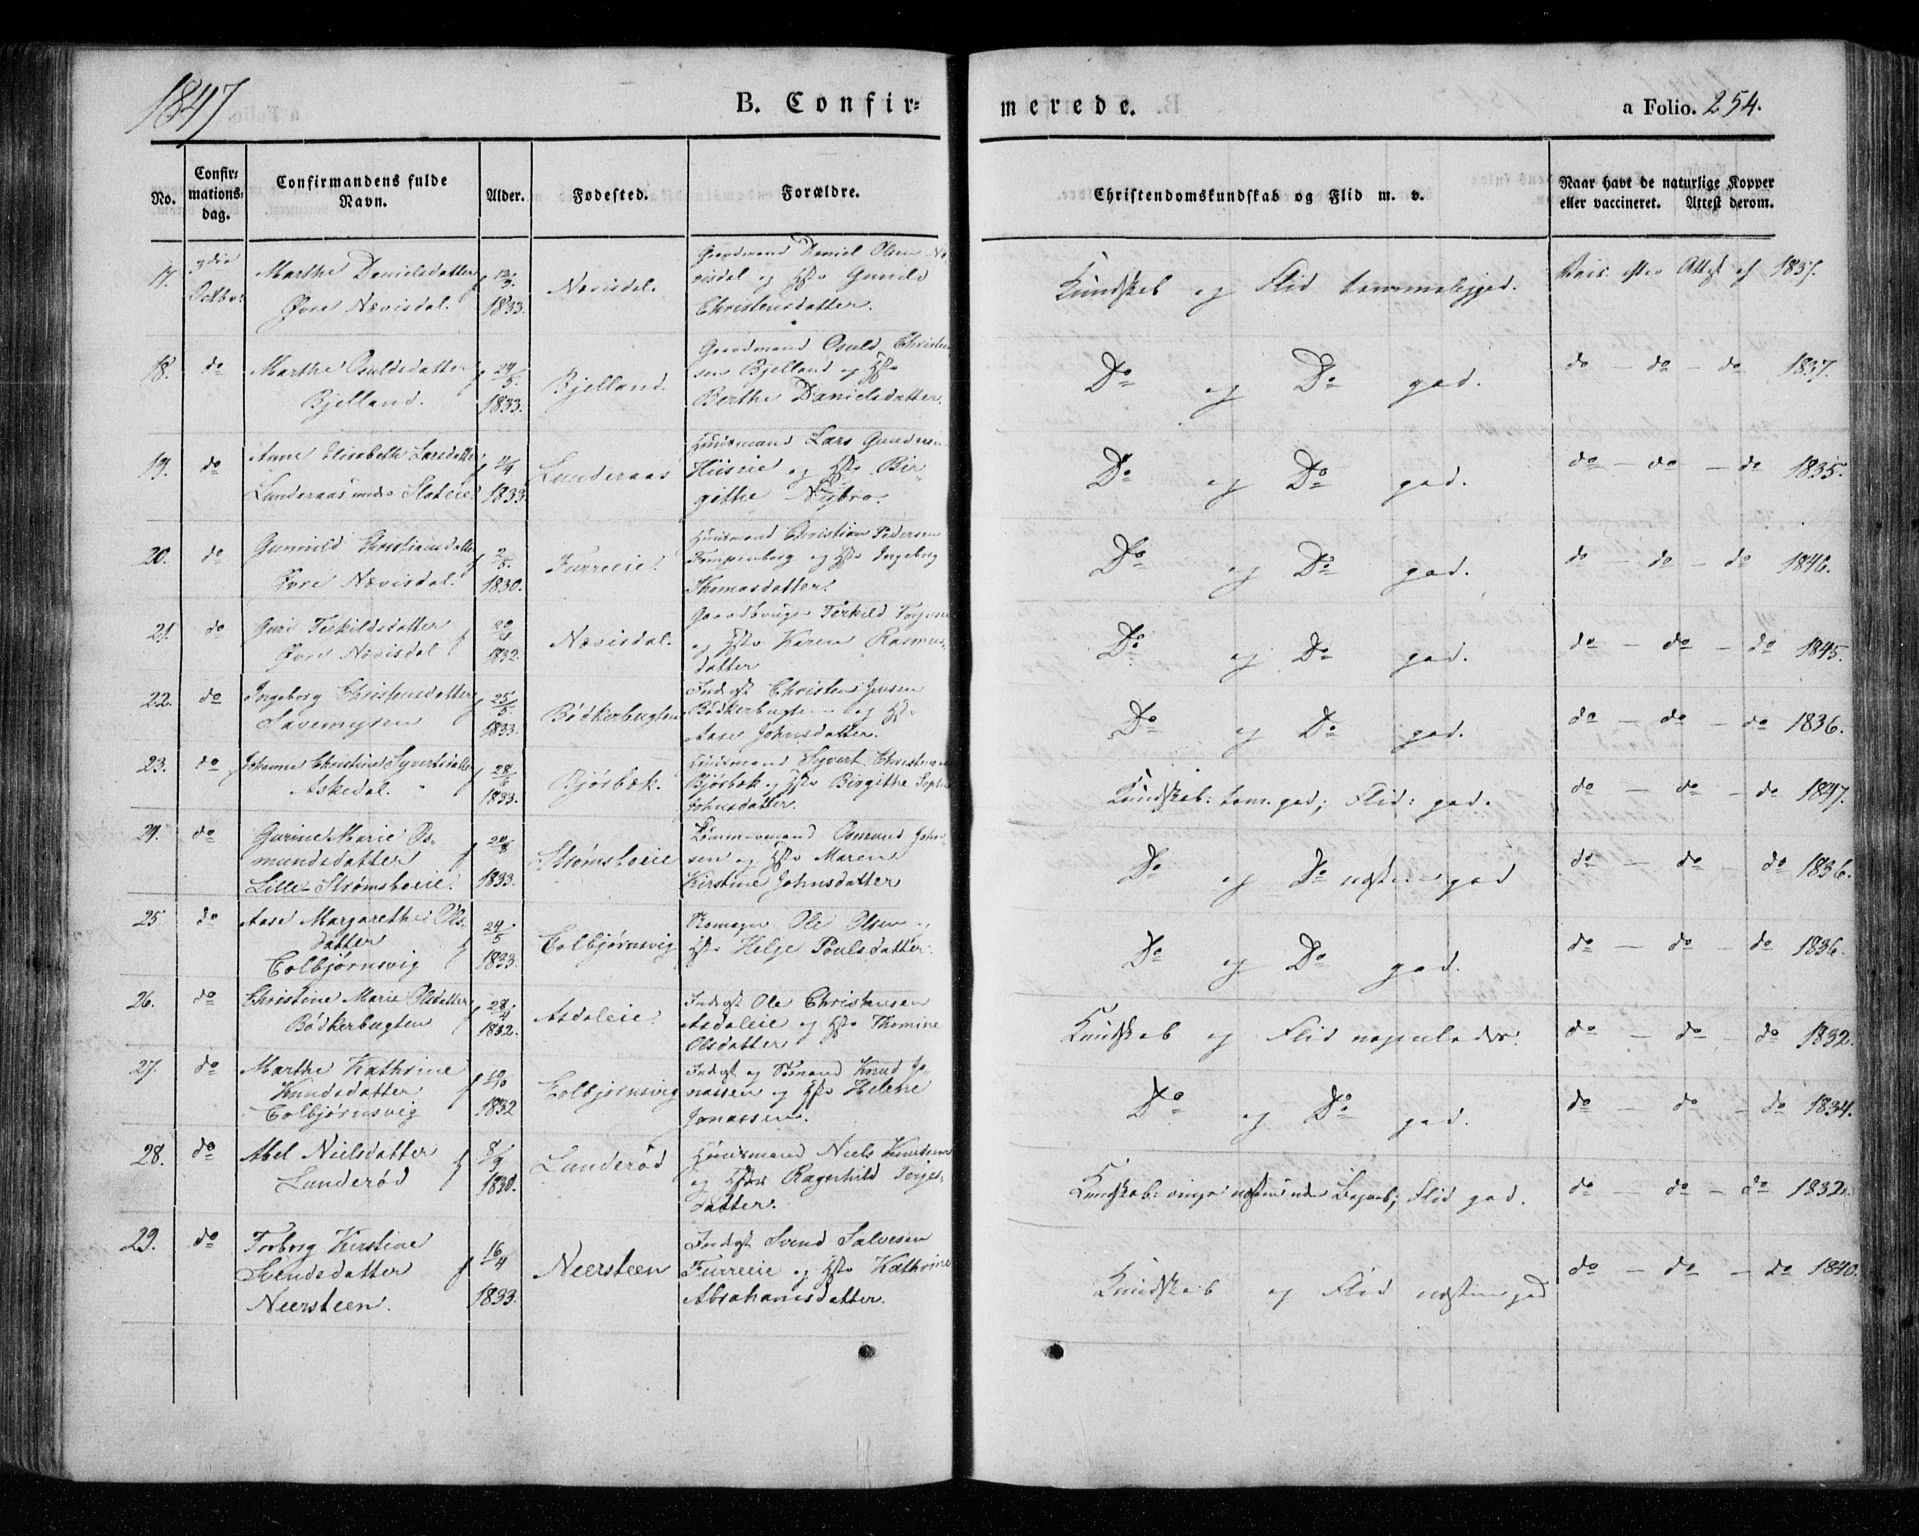 1847
B. Confir=
merede.
a Folio. 254.
No.
Confir=
mations=
dag.
Confirmandens fulde
Navn.
Alder.
Fødested.
Forældre.
Christendomskundskab og Flid m. v.
Naar havt de naturlige Kopper
eller vaccineret. Attest derom.
17.
Octbr
Marthe Danielsdatter
Øvre Nævisdal.
f 12/3 1833.
Nævisdal.
Gaardmand Daniel Olsen Næ
visdal og Hst Gunild
Christensdatter.
Kundskab og Flid temmelig god.
Vacc. efter Attest af 1837.
18.
do
Marthe Osuldsdatter
Bjelland.
f 24/5 1833.
Bjelland.
Gaardmand Osuld Christen
sen Bjelland og Hst
Berthe Danielsdatter.
Do og Do god.
do – do – do 1837.
19.
do
Anne Elisabeth Larsdatter
Lunderaas
1833.
Lunderaas
Huusmand Lars
og Hst Bir
githe Nybro.
Do og Do god.
do – do – do 1835.
20.
do
Gunnild Christiansdatter
Øvre Nævisdal.
f 2/5 1830.
Furreeie.
Huusmand Christian Pedersen
og Hst Ingeborg
Thomasdatter.
Do og Do god.
do – do – do 1846.
21.
do
Guri Terkildsdatter
Øvre Nævisdal
f
1832.
Nævisdal.
Gaardbruger Terkild
og Hst Karen Rasmus=
datter
Do og Do god.
do – do – do 1845.
22.
do
Ingeborg Christensdatter
Savemyren
f 25/5 1833.
Bødkerbugten
Indgst Christen Jensen
Bødkerbugten og Hst
Aase Johnsdatter.
Do og Do god.
do – do – do 1836.
23.
do
Johanne Christine Syvertsdatter
Askedal.
f
1833.
Bjørbæk.
Huusmand Syvert Christensen
Bjørbæk og Hst Birgithe Sophie
Johnsdatter.
Kundskab: tem. god; Flid: god.
do – do – do 1847.
24.
do
Gurine Marie Os=
mundsdatter
Lille Strømsboeie.
f
1833.
Strømsboeie
Tømmermand Osmund John=
sen og Hst Maren
Kirstine Johnsdatter
Do og Do næsten god
do – do – do 1836.
25.
do
Aase Margarethe Ols=
datter
Colbjørnsvig
f 24/5 1833.
Colbjørnsvig
Ole Olsen og
Hst Helje Poulsdatter.
Do og Do god.
do – do – do 1836.
26.
do
Christine Marie Olsdatter
Bødkerbugten
f 28/4 1832.
Asdaleie.
Indgst Ole Christensen
Asdaleie og Hst Thomine
Olsdatter
Kundskab og Flid
do – do – do 1832.
27.
do
Marthe Kathrine
Knudsdatter
Colbjørnsvig
f
1832
Colbjørnsvig
Indgst og Sømand Knud Jo=
nassen og Hst Helene
Jonassen.
Do og Do god.
do – do – do 1834.
28.
do
Abel Nielsdatter
Lunderød
f 8/9 1830.
Lunderød
Huusmand Niels Knudsen
og Hst Ragnhild Terjes=
datter.
Kundskab: ringe næsten uden Begreb; Flid god.
do – do – do 1832.
29.
do
Torborg Kirstine
Svendsdatter
Neersteen.
f 16/4 1833.
Neersteen
Indgst Svend Salvesen
Furreeie og Hst Kathrine
Abrahamsdatter.
Kundskab og Flid næsten god
do – do – do 1840.